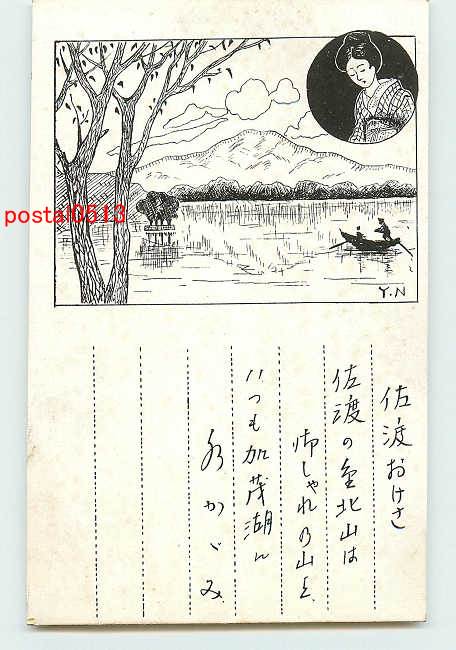 postal0513
Y.N
佐渡おけさ
佐渡の金北山は
おしゃれの山よ、
いつも加茂湖に
水かゞみ